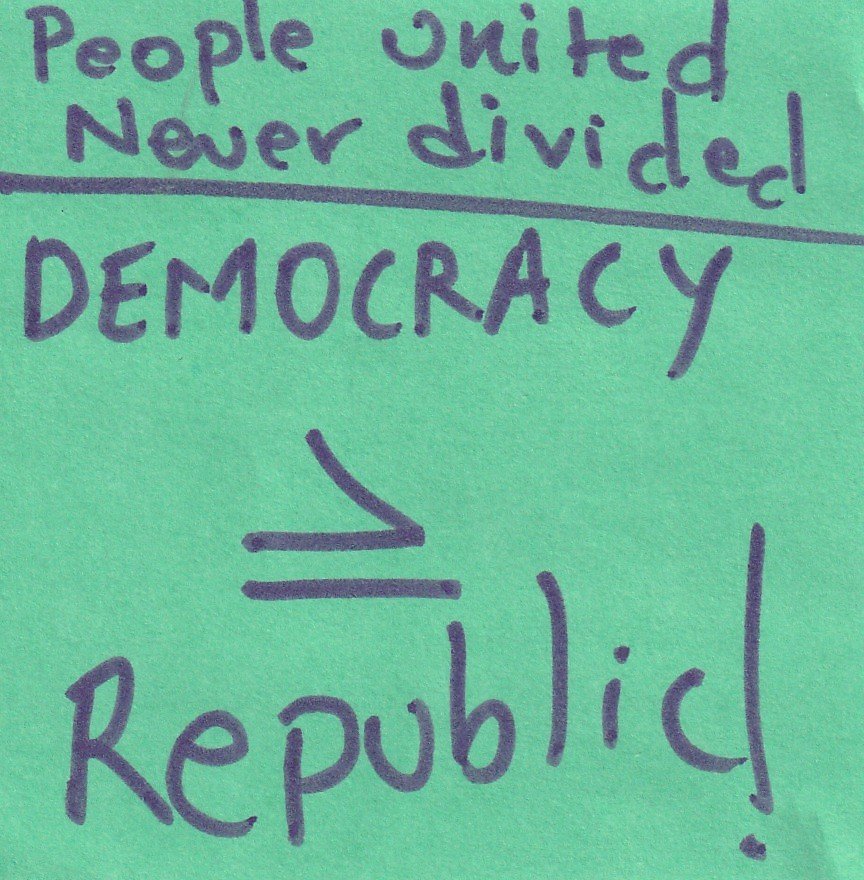 People united
Never divided
DEMOCRACY
≥
Republic!